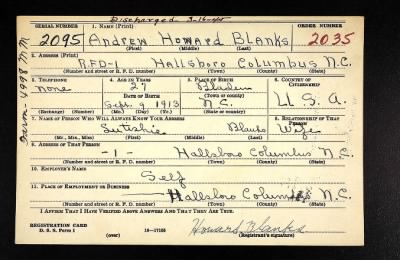 Discharged 3-16-45
SERIAL NUMBER 1. NAME (Print) ORDER NUMBER
2095 Andrew Howard Blanks 2035
(First) (Middle) (Last)
2. ADDRESS (Print)
RFD-1 Hallsboro Columbus N.C.
(Number and street or R. F. D. number) (Town) (County) (State)
3. TELEPHONE 4. AGE IN YEARS 5. PLACE OF BIRTH 6. COUNTRY OF CITIZENSHIP
none 27 Bladen
(Town or county)
DATE OF BIRTH
Sept. 9 1913 N.C. U.S.A.
(Exchange) (Number) (Mo.) (Day) (Yr.) (State or country)
7. NAME OF PERSON WHO WILL ALWAYS KNOW YOUR ADDRESS 8. RELATIONSHIP OF THAT PERSON
Blanks Wife
(Mr., Mrs., Miss) (First) (Middle) (Last)
9. ADDRESS OF THAT PERSON
-1- Hallsboro Columbus N.C.
(Number and street or R. F. D. number) (Town) (County) (State)
10. EMPLOYER'S NAME
Self
11. PLACE OF EMPLOYMENT OR BUSINESS
Hallsboro Columbus N.C.
(Number and street or R. F. D. number) (Town) (County) (State)
I AFFIRM THAT I HAVE VERIFIED ABOVE ANSWERS AND THAT THEY ARE TRUE.
REGISTRATION CARD
D. S. S. Form 1 (over) 16-17105
Howard Blanks
(Registrant's signature)